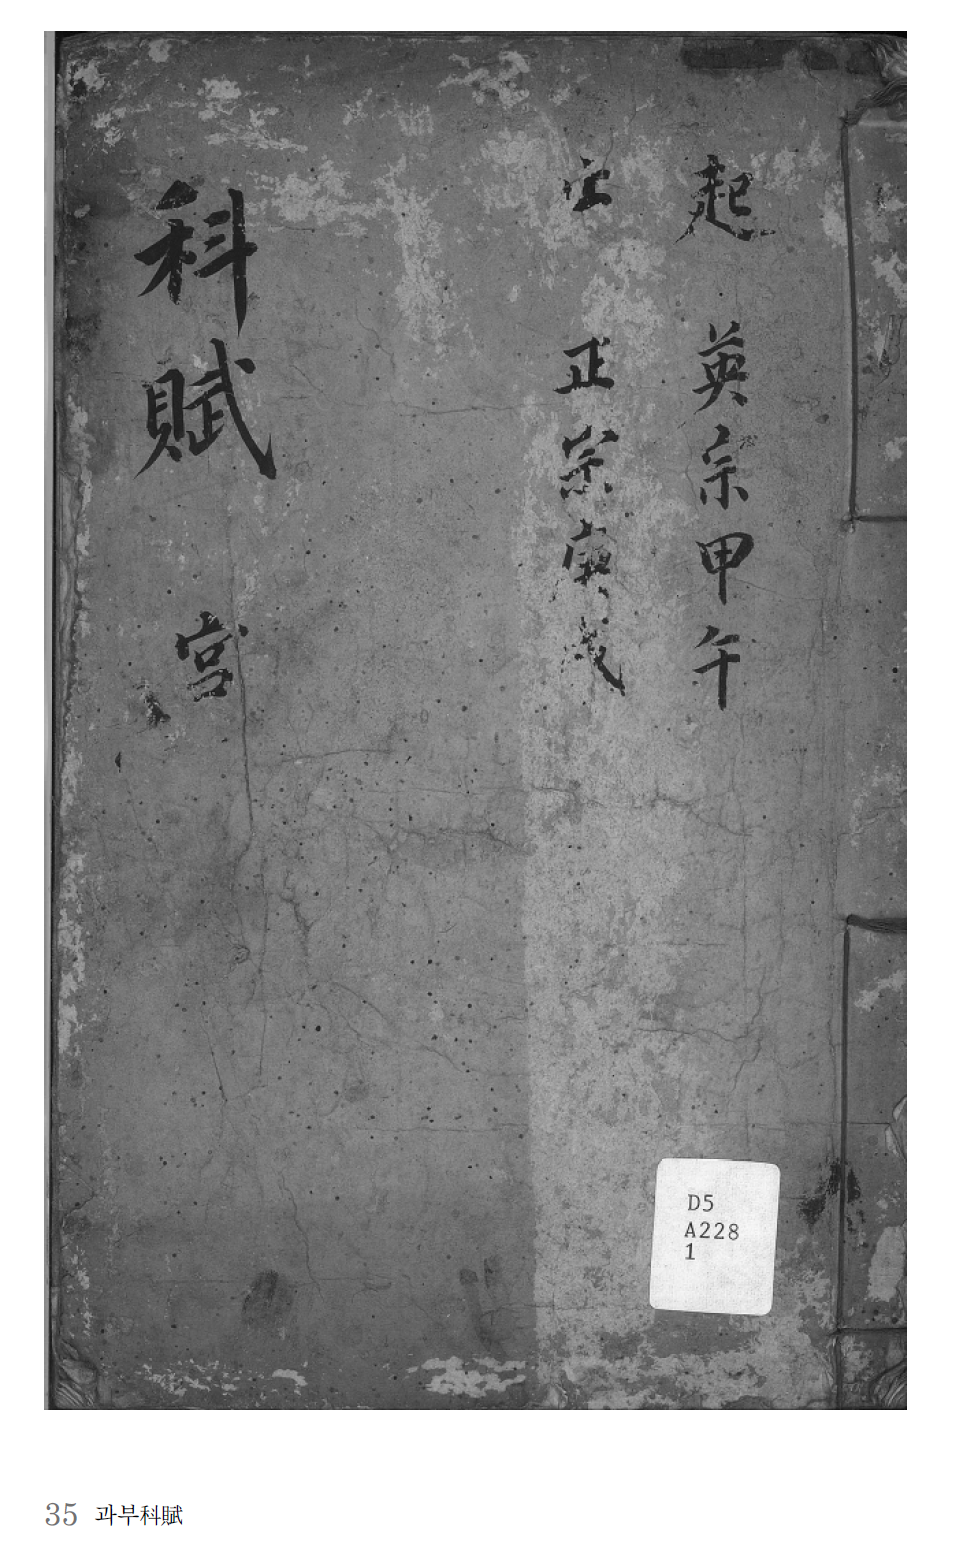 起 英宗甲午
止 正宗庚戌
科賦 宮
D5
A228
1
35 과부科賦